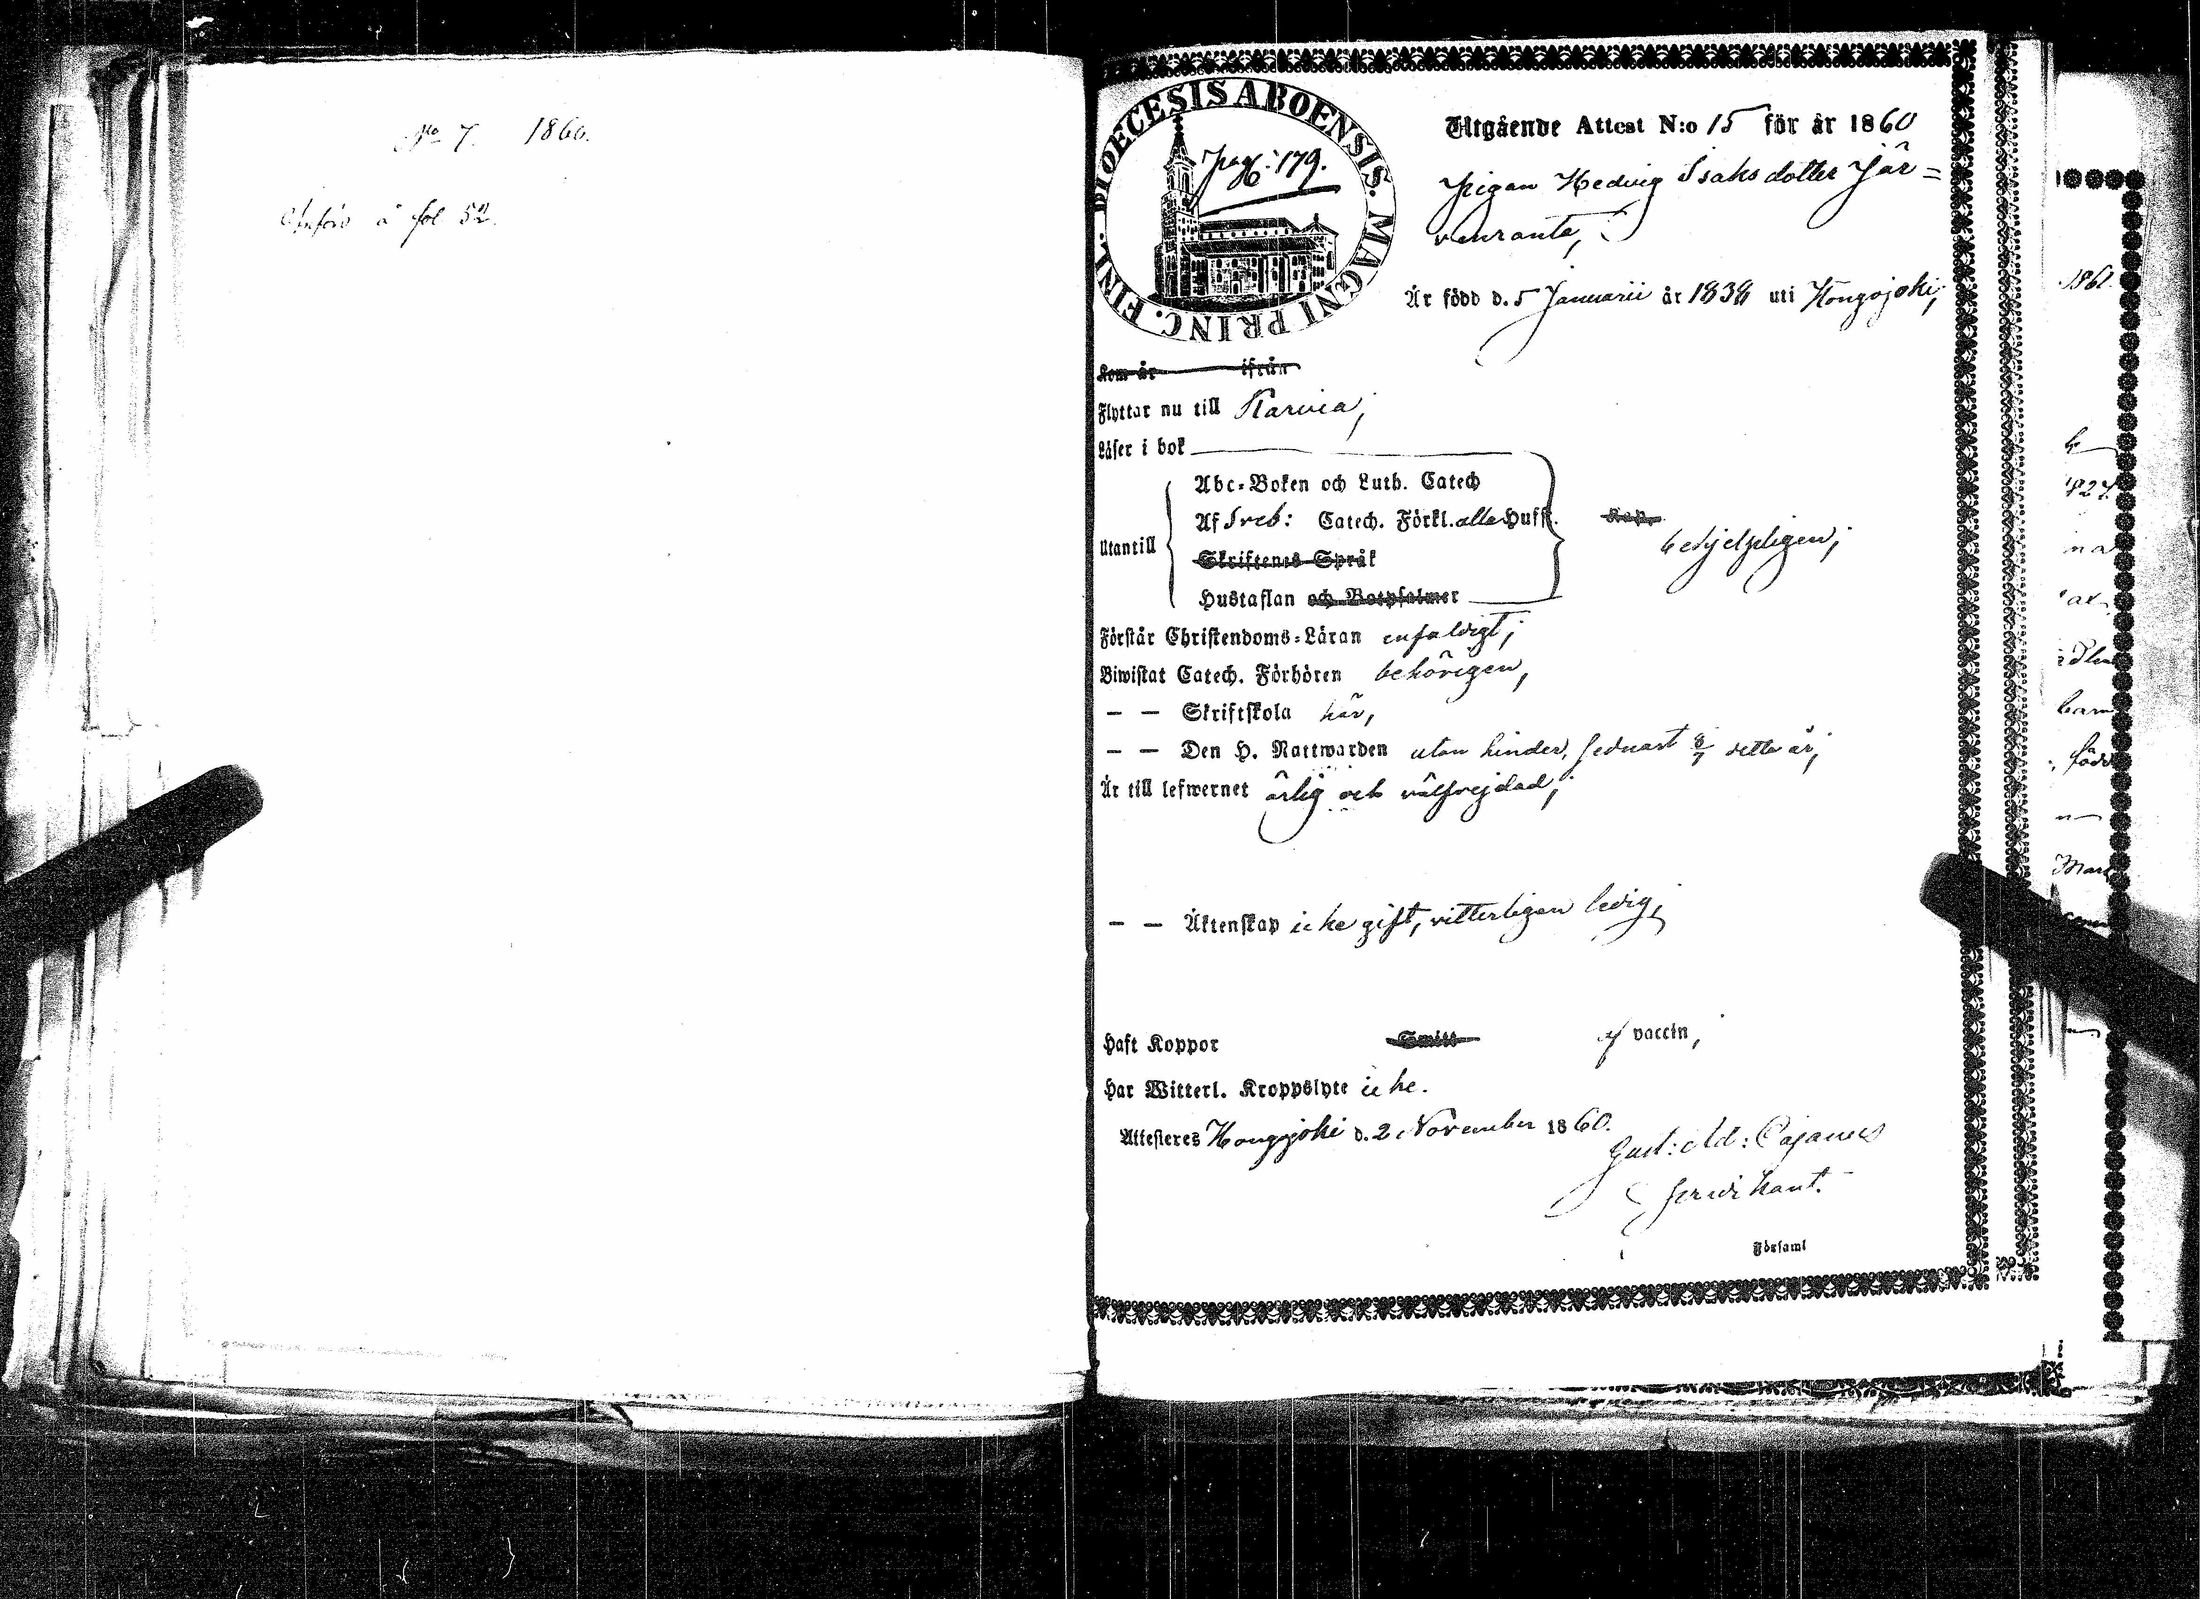 No 7. 1860.
Införd å fol 52.
DIOECESIS ABOENSIS. MAGNI PRINC. FINL.
pag: 179.
Utgående Attest N:o 15 för år 1860
Pigan Hedvig Isaksdotter Jär=
venranta,
Är född d. 5 Januarii år 1838 uti Hongojoki;
Kom år ifrån
Flyttar nu till Karvia;
Läser i bok
Utantill
Abc-Boken och Luth. Catech
Af Sveb: Catech. Förkl. alla Hufst.
Skriftenes Språk
Hustaflan och Botpsalmer
behjelpligen;
Förstår Christendoms-Läran enfaldigt;
Biwistat Catech. Förhören behörigen,
— — Skriftskola här,
— — Den H. Nattwarden utan hinder, sednast 8/7 detta år;
Är till lefwernet ärlig och välfrejdad;
— — Äktenskap icke gift, vitterligen ledig,
Haft Koppor Smitt af vaccin,
Har Witterl. Kroppslyte icke.
Attesteres Hongojoki d. 2 November 1860.
Gust: Ad: Cajanus
Församl
1861.
född